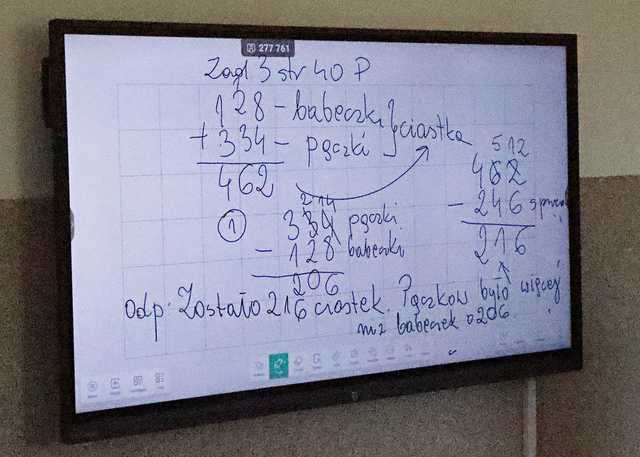 277 761
Zad 3 str 40 P
128 - babeczki } ciastka
+ 334 - pączki
462
512
462
- 246
216
①
214
334 pączki
- 128 babeczki
206
Odp: Zostało 216 ciastek. Pączków było więcej
niż babeczek o 206.